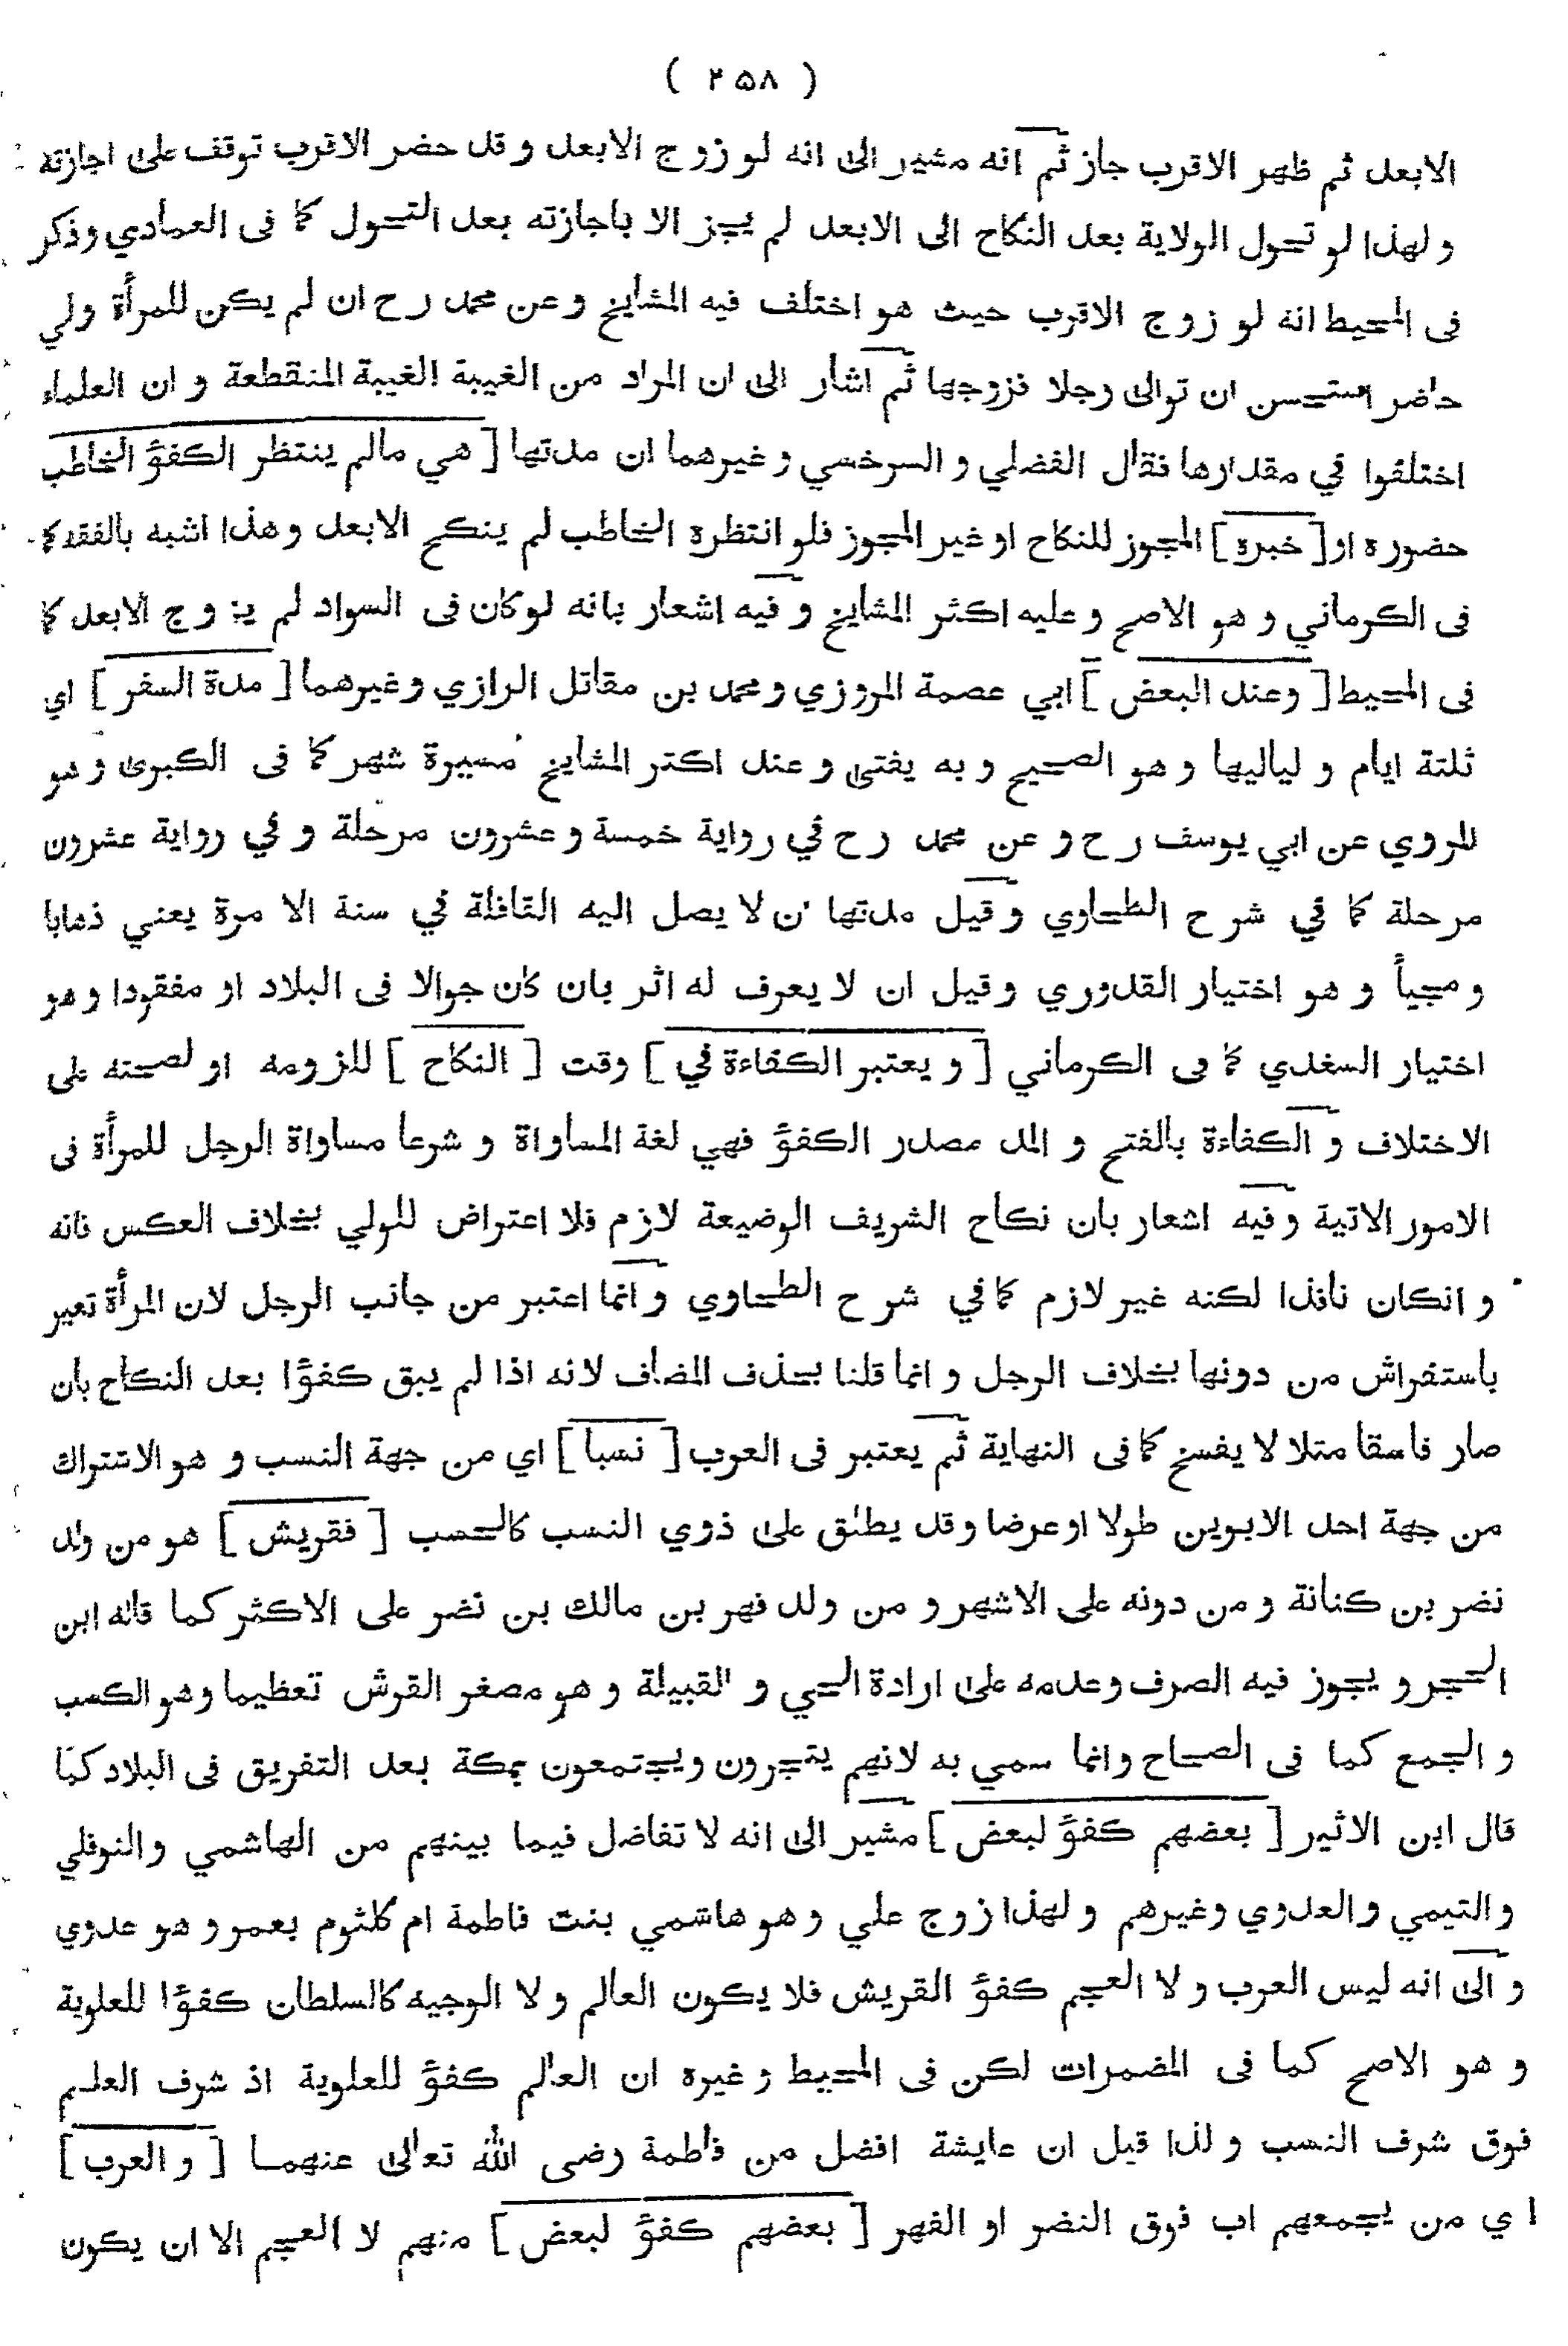 ( ۲۵۸ )
الابعد ثم ظهر الاقرب جاز ثم انه مشير الى انه لو زوج الابعد و قد حضر الاقرب توقف على اجازته
و لهذا لو تحول الولاية بعد النكاح الى الابعد لم يجز الا باجازته بعد التحول كما فى العمادي وذكر
فى المحيط انه لو زوج الاقرب حيث هو اختلف فيه المشايخ و عن محمد رح ان لم يكن للمرأة ولي
حاضر استحسن ان توالى رجلا فزوجها ثم اشار الى ان المراد من الغيبة الغيبة المنقطعة و ان العلماء
اختلفوا في مقدارها فقال الفضلي و السرخسي و غيرهما ان مدتها [ هي مالم ينتظر الكفؤ الخاطب
حضوره او [ خبره ] المجوز للنكاح او غير المجوز فلو انتظره الخاطب لم ينكح الابعد و هذا اشبه بالفقه كما
فى الكرماني و هو الاصح و عليه اكثر المشايخ و فيه اشعار بانه لو كان فى السواد لم يزوج الابعد كما
فى المحيط [ وعند البعض ] ابي عصمة المروزي و محمد بن مقاتل الرازي و غيرهما [ مدة السفر ] اي
ثلثة ايام و لياليها و هو الصحيح و به يفتى و عند اكثر المشايخ مسيرة شهر كما فى الكبرى و هو
المروي عن ابي يوسف رح و عن محمد رح في رواية خمسة و عشرون مرحلة و في رواية عشرون
مرحلة كما في شرح الطحاوي و قيل مدتها ان لا يصل اليه القافلة في سنة الا مرة يعني ذهابا
و مجيأ و هو اختيار القدوري و قيل ان لا يعرف له اثر بان كان جوالا فى البلاد او مفقودا و هو
اختيار السغدي كما فى الكرماني [ و يعتبر الكفاءة في ] وقت [ النكاح ] للزومه او لصحته على
الاختلاف و الكفاءة بالفتح و المد مصدر الكفؤ فهي لغة المساواة و شرعا مساواة الرجل للمرأة فى
الامور الاتية و فيه اشعار بان نكاح الشريف الوضيعة لازم فلا اعتراض للولي بخلاف العكس فانه
و انكان نافذا لكنه غير لازم كما في شرح الطحاوي و انما اعتبر من جانب الرجل لان المرأة تعير
باستفراش من دونها بخلاف الرجل و انما قلنا بحذف المضاف لانه اذا لم يبق كفؤا بعد النكاح بان
صار فاسقا مثلا لا يفسخ كما فى النهاية ثم يعتبر فى العرب [ نسبا ] اي من جهة النسب و هو الاشتراك
من جهة احد الابوين طولا او عرضا و قد يطلق على ذوي النسب كالحسب [ فقريش ] هو من ولد
نضر بن كنانة و من دونه على الاشهر و من ولد فهر بن مالك بن نضر على الاكثر كما قاله ابن
الحجر و يجوز فيه الصرف و عدمه على ارادة الحي و القبيلة و هو مصغر القرش تعظيما و هو الكسب
و الجمع كما فى الصحاح و انما سمي به لانهم يتجرون و يجتمعون بمكة بعد التفريق فى البلاد كما
قال ابن الاثير [ بعضهم كفؤ لبعض ] مشير الى انه لا تفاضل فيما بينهم من الهاشمي و النوفلي
و التيمي و العدوي و غيرهم و لهذا زوج علي و هو هاشمي بنت فاطمة ام كلثوم بعمر و هو عدوي
و الى انه ليس العرب و لا العجم كفؤ القريش فلا يكون العالم و لا الوجيه كالسلطان كفؤا للعلوية
و هو الاصح كما فى المضمرات لكن فى المحيط و غيره ان العالم كفؤ للعلوية اذ شرف العلم
فوق شرف النسب و لذا قيل ان عايشة افضل من فاطمة رضى الله تعالى عنهما [ و العرب ]
اي من يجمعهم اب فوق النضر او الفهر [ بعضهم كفؤ لبعض ] منهم لا العجم الا ان يكون